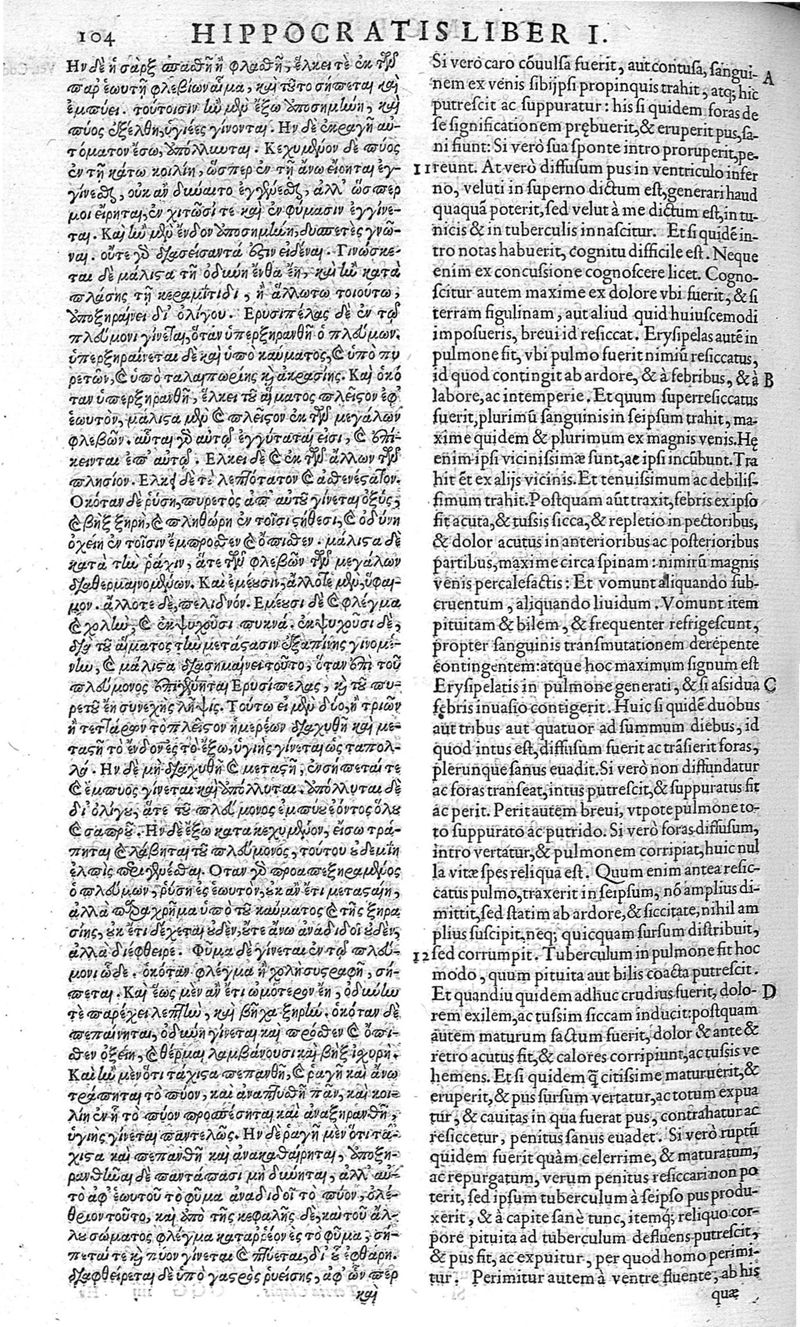 104 HIPPOCRATIS LIBER I.
Ην δὲ ἡ σὰρξ σπασθῇ ἢ φλασθῇ, ἕλκει τε ἐκ τῶν
παρ' ἑωυτῇ φλεβίων αἷμα, καὶ τοῦτο σήπεται καὶ
ἐμπύει. τούτοισιν ἢν μὲν ἔξω ὑποσημήνῃ, καὶ
πύος ἐξέλθῃ, ὑγιέες γίνονται. Ην δὲ ἐκραγῇ αὐ-
τόματον ἔσω, ὑπόλλυται. Κεχυμένον δὲ πῦος
ἐν τῇ κάτω κοιλίῃ, ὥσπερ ἐν τῇ ἄνω εἴρηται ἐγ-
γίνεσθαι, οὐκ ἂν δύναιτο ἐγγενέσθαι, ἀλλ' ὥσπερ
μοι εἴρηται, ἐν χιτῶσί τε καὶ ἐν φύμασιν ἐγγίνε-
ται. Καὶ ἢν μὲν ἔνδον ὑποσημήνῃ, δυσπετὲς γνῶ-
ναι. οὔτε γὰρ διασείσαντά ἐστιν εἰδέναι. Γινώσκε-
ται δὲ μάλιστα τῇ ὀδύνῃ ἔνθα ἔῃ, καὶ ἢν κατα
πλάσῃς τῇ κεραμίτιδι, ἢ ἄλλῳ τῳ τοιούτῳ,
ὑποξηραίνει δι' ὀλίγου. Ερυσιπέλας δὲ ἐν τῷ
πλεύμονι γίνεται, ὅταν ὑπερξηρανθῇ ὁ πλεύμων.
ὑπερξηραίνεται δὲ καὶ ὑπὸ καύματος, καὶ ὑπὸ πυ
ρετῶν, καὶ ὑπὸ ταλαιπωρίης καὶ ἀκρασίης. Καὶ ὁκό
ταν ὑπερξηρανθῇ, ἕλκει τοῦ αἵματος πλεῖστον ἐφ'
ἑωυτόν, μάλιστα μὲν καὶ πλεῖστον ἐκ τῶν μεγάλων
φλεβῶν. αὗται γὰρ αὐτῷ ἐγγύταται εἰσι, καὶ ἐπί-
κεινται ἐπ' αὐτῷ. Ελκει δὲ καὶ ἐκ τῶν ἄλλων τῶν
πλησίον. Ελκει δὲ τὸ λεπτότατον καὶ ἀσθενέστατον.
Οκόταν δὲ ἐρύσῃ, πυρετὸς ἀπ' αὐτοῦ γίνεται ὀξύς,
καὶ βὴξ ξηρή, καὶ πληθώρη ἐν τοῖσι στήθεσι, καὶ ὀδύνη
ὀξείη ἐν τοῖσιν ἔμπροσθεν καὶ ὄπισθεν. μάλιστα δὲ
κατὰ τὴν ῥάχιν, ἅτε τῶν φλεβῶν τῶν μεγάλων
διαθερμαινομένων. Καὶ ἐμέουσιν, ἄλλοτε μὲν, ὕφαι-
μον. ἄλλοτε δὲ, πελιδνόν. Εμέουσι δὲ καὶ φλέγμα
καὶ χολὴν, καὶ ἐκψύχουσι πυκνά. ἐκψύχουσι δὲ,
διὰ τοῦ αἵματος τὴν μετάστασιν ἐξαπίνης γινομέ-
νην, καὶ μάλιστα διασημαίνει τοῦτο, ὅταν ἐπὶ τοῦ
πλεύμονος ἐπιγένηται Ερυσίπελας, καὶ τοῦ πυ-
ρετοῦ ἔῃ συνεχὴς λῆψις. Τούτῳ εἰ μὲν δύο, ἢ τριῶν
ἢ τετάρων τὸ πλεῖστον ἡμερέων διαχυθῇ καὶ με-
ταστῇ τὸ ἔνδον ἐς τὸ ἔξω, ὑγιὴς γίνεται ὡς ταπολ-
λά. Ην δὲ μὴ διαχυθῇ καὶ μεταστῇ, ἐνσήπεταί τε
καὶ ἔμπυος γίνεται καὶ ὑπόλλυται. ὑπόλλυται δὲ
δι' ὀλίγου, ἅτε τοῦ πλεύμονος ἐμπύου ἐόντος ὅλου
καὶ σαπροῦ. Ην δὲ ἔξω κατακεχυμένον, εἴσω τρά-
πηται καὶ λάβηται τοῦ πλεύμονος, τούτου οὐδεμίη
ἐλπὶς περιγενέσθαι. Οταν γὰρ προαπεξηραμένος
ὁ πλεύμων, ἐρύσῃ ἐς ἑωυτόν, οὐκ ἂν ἔτι μετασταίη,
ἀλλὰ παραχρῆμα ὑπὸ τοῦ καύματος καὶ τῆς ξηρα
σίης, οὐκ ἔτι δέχεται οὐδέν, οὔτε ἄνω ἀναδιδοῖ οὐδέν,
ἀλλὰ διέφθειρε. Φῦμα δὲ γίνεται ἐν τῷ πλεύ-
μονι ὧδε. ὁκόταν φλέγμα ἢ χολὴ συστραφῇ, σή-
πεται. Καὶ ἕως μὲν ἂν ἔτι ὠμότερον ἔῃ, ὀδύνην
τε παρέχει λεπτὴν, καὶ βῆχα ξηρήν. ὁκόταν δὲ
πεπαίνηται, ὀδύνη γίνεται καὶ πρόσθεν καὶ ὄπι-
σθεν ὀξείη, καὶ θέρμαι λαμβάνουσι καὶ βὴξ ἰσχυρή.
Καὶ ἢν μὲν ὅτι τάχιστα πεπανθῇ, καὶ ῥαγῇ καὶ ἄνω
τράπηται τὸ πῦον, καὶ ἀναπτυσθῇ πᾶν, καὶ κοι-
λίη ἐν ᾗ τὸ πῦον προσπέσηται καὶ ἀναξηρανθῇ,
ὑγιὴς γίνεται παντελῶς. Ην δὲ ῥαγῇ μὲν ὅτι τά-
χιστα καὶ πεπανθῇ καὶ ἀνακαθαίρηται, ὑποξη-
ρανθῆναι δὲ παντάπασι μὴ δύνηται, ἀλλ' αὐ-
τὸ ἀφ' ἑωυτοῦ τὸ φῦμα ἀναδιδοῖ τὸ πῦον, ὀλέ-
θριον τοῦτο, καὶ ἀπὸ τῆς κεφαλῆς δὲ, καὶ τοῦ ἄλ-
λου σώματος φλέγμα καταρρέον ἐς τὸ φῦμα, σή-
πεταί τε καὶ πῦον γίνεται καὶ πτύεται, δι' οὗ ἐφθάρη.
διαφθείρεται δὲ ὑπὸ γαστρὸς ῥυείσης, ἀφ' ὧν περ
καὶ
Si verò caro cõuulsa fuerit, aut contusa, sangui-
nem ex venis sibijpsi propinquis trahit, atq; hic A
putrescit ac suppuratur: his si quidem foras de
se significationem prębuerit, & eruperit pus, sa-
ni fiunt: Si verò sua sponte intro proruperit, pe-
11 reunt. At verò diffusum pus in ventriculo infer
no, veluti in superno dictum est, generari haud
quaquã poterit, sed velut à me dictum est, in tu-
nicis & in tuberculis innascitur. Et si quidẽ in-
tro notas habuerit, cognitu difficile est. Neque
enim ex concussione cognoscere licet. Cogno-
scitur autem maxime ex dolore vbi fuerit, & si
terram figulinam, aut aliud quid huiuscemodi
imposueris, breui id resiccat. Erysipelas autẽ in
pulmone fit, vbi pulmo fuerit nimiũ resiccatus,
id quod contingit ab ardore, & à febribus, & à B
labore, ac intemperie. Et quum superresiccatus
fuerit, plurimũ sanguinis in seipsum trahit, ma-
xime quidem & plurimum ex magnis venis. Hę
enim ipsi vicinissimæ sunt, ac ipsi incũbunt. Tra
hit ẽt ex alijs vicinis. Et tenuissimum ac debilis-
simum trahit. Postquam aũt traxit, febris ex ipso
fit acuta, & tussis sicca, & repletio in pectoribus,
& dolor acutus in anterioribus ac posterioribus
partibus, maxime circa spinam: nimirũ magnis
venis percalefactis: Et vomunt aliquando sub-
cruentum, aliquando liuidum. Vomunt item
pituitam & bilem, & frequenter refrigescunt,
propter sanguinis transmutationem derepente
contingentem: atque hoc maximum signum est
Erysipelatis in pulmone generati, & si assidua C
febris inuasio contigerit. Huic si quidẽ duobus
aut tribus aut quatuor ad summum diebus, id
quod intus est, diffusum fuerit ac trãsierit foras,
plerunque sanus euadit. Si verò non diffundatur
ac foras transeat, intus putrescit, & suppuratus fit
ac perit. Perit autem breui, vtpote pulmone to-
to suppurato ac putrido. Si verò foras diffusum,
intro vertatur, & pulmonem corripiat, huic nul
la vitæ spes reliqua est. Quum enim antea resic-
catus pulmo, traxerit in seipsum, nõ amplius di-
mittit, sed statim ab ardore, & siccitate, nihil am
plius suscipit, neq; quicquam sursum distribuit,
12 sed corrumpit. Tuberculum in pulmone fit hoc
modo, quum pituita aut bilis coacta putrescit.
Et quandiu quidem adhuc crudius fuerit, dolo- D
rem exilem, ac tussim siccam inducit: postquam
autem maturum factum fuerit, dolor & ante &
retro acutus fit, & calores corripiunt, ac tussis ve
hemens. Et si quidem q̃ citissime maturuerit, &
eruperit, & pus sursum vertatur, ac totum expua
tur, & cauitas in qua fuerat pus, contrahatur ac
resiccetur, penitus sanus euadet. Si verò ruptũ
quidem fuerit quàm celerrime, & maturatum,
ac repurgatum, verum penitus resiccari non po
terit, sed ipsum tuberculum à seipso pus produ-
xerit, & à capite sanè tunc, itemq; reliquo cor-
pore pituita ad tuberculum defluens putrescit,
& pus fit, ac expuitur, per quod homo perimi-
tur. Perimitur autem à ventre fluente, ab his
quæ